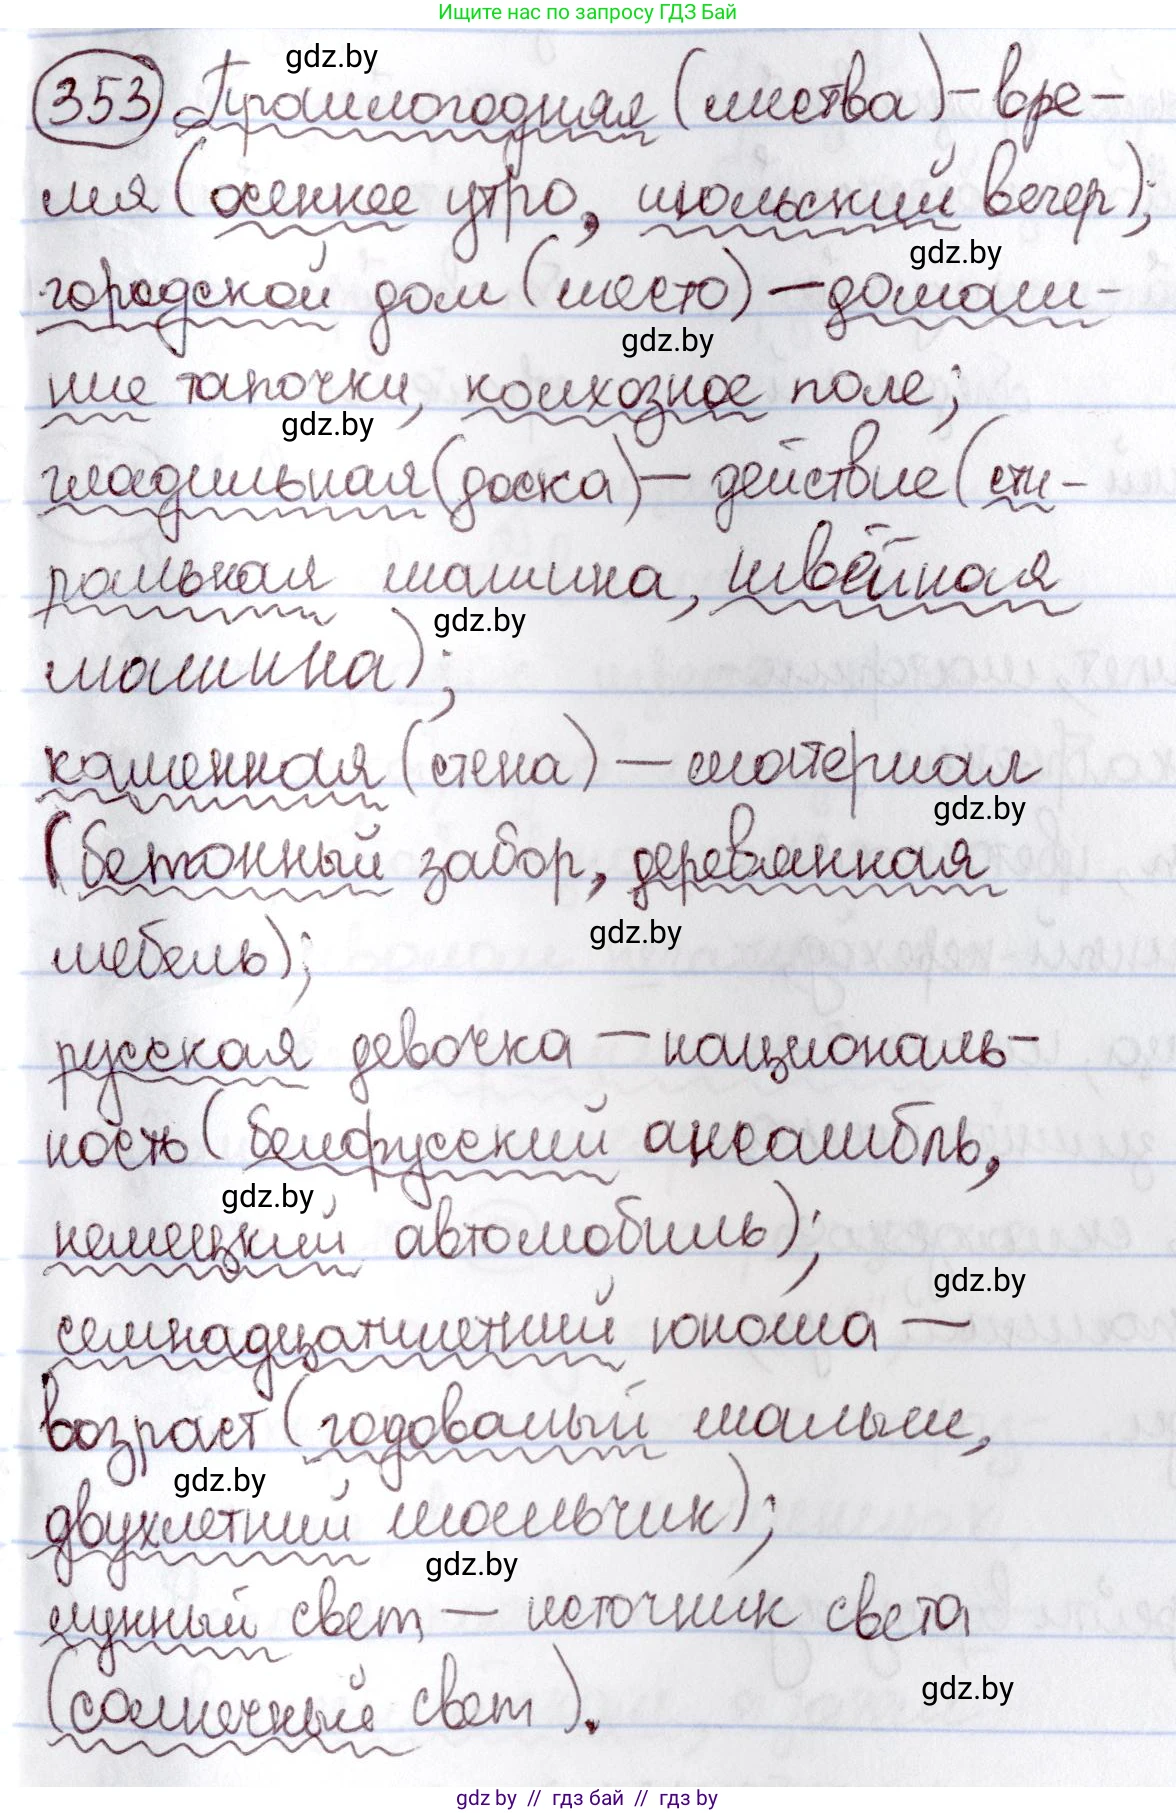 Ищите нас по запросу ГДЗ Бай
gdz.by
353 Прошлогодняя (листва) – вре-
мя (осеннее утро, июльский вечер);
gdz.by
городской дом (место) – домаш-
gdz.by
ние тапочки, колхозное поле;
gdz.by
гладильная (доска) – действие (сти-
ральная машина, швейная
gdz.by
машина);
каменная (стена) – материал
gdz.by
(бетонный забор, деревянная
gdz.by
мебель);
русская девочка – националь-
ность (белорусский ансамбль,
gdz.by
немецкий автомобиль);
gdz.by
семнадцатилетний юноша –
возраст (годовалый малыш,
gdz.by
двухлетний мальчик);
gdz.by
лунный свет – источник света
gdz.by
(солнечный свет).
gdz.by // гдз бай // гдз by